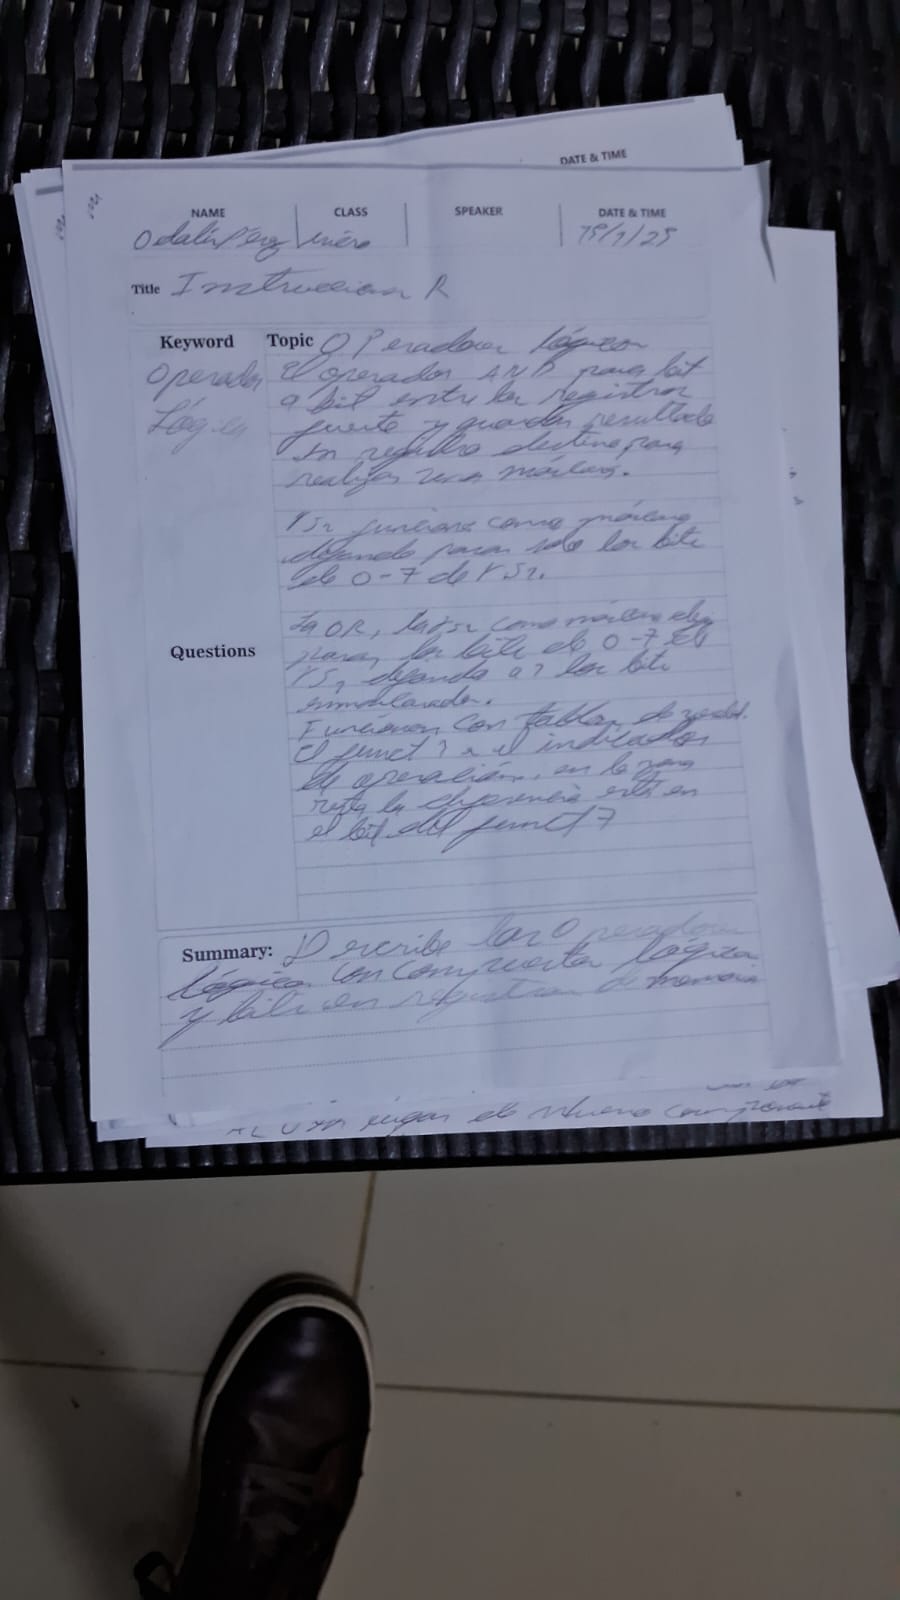 DATE & TIME
NAME CLASS SPEAKER DATE & TIME
Odalis Pérez
Title Instruccion R
Keyword Topic Operadores lógicos
Operador El operador AND para bit
a bit entre los registros
fuente y guardar resultado
en registro destino para
realizar una máscara.
rs2 funciona como máscara
dejando pasar solo los bits
de 0-7 de rs1.
La OR, la rs2 como máscara deja
Questions pasar los bits de 0-7 de
rs1 dejando a 1 los bits
enmascarados.
Funcionan con tablas de verdad.
El funct3 es el indicador
de operación, en la suma
resta la diferencia está en
el bit del funct7
Summary: Describe los Operadores
lógicos con compuertas lógicas
y bits en registros de memoria
en lugar de